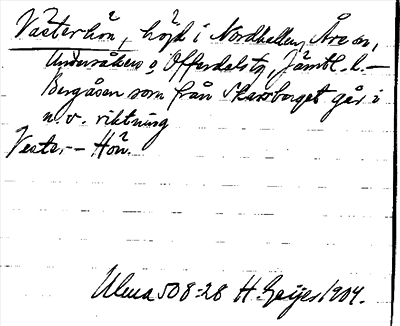 Västerhön, höjd i Nordhallen, Åre sn,
Undersåkers o Offerdals tg, Jämtl. l. —
Bergåsen som från Skarsberget går i
n. v. riktning
Vester — Hön.
Ulma 508:28 H. Geijer 1904.